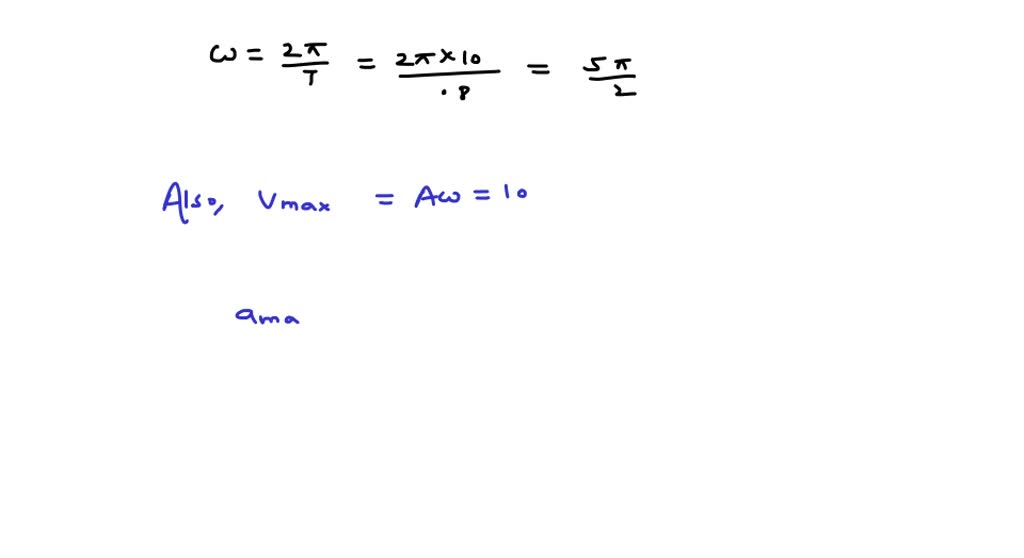 ω = 2π/T = 2π×10/.8 = 5π/2
Also, Vmax = Aω = 10
ama